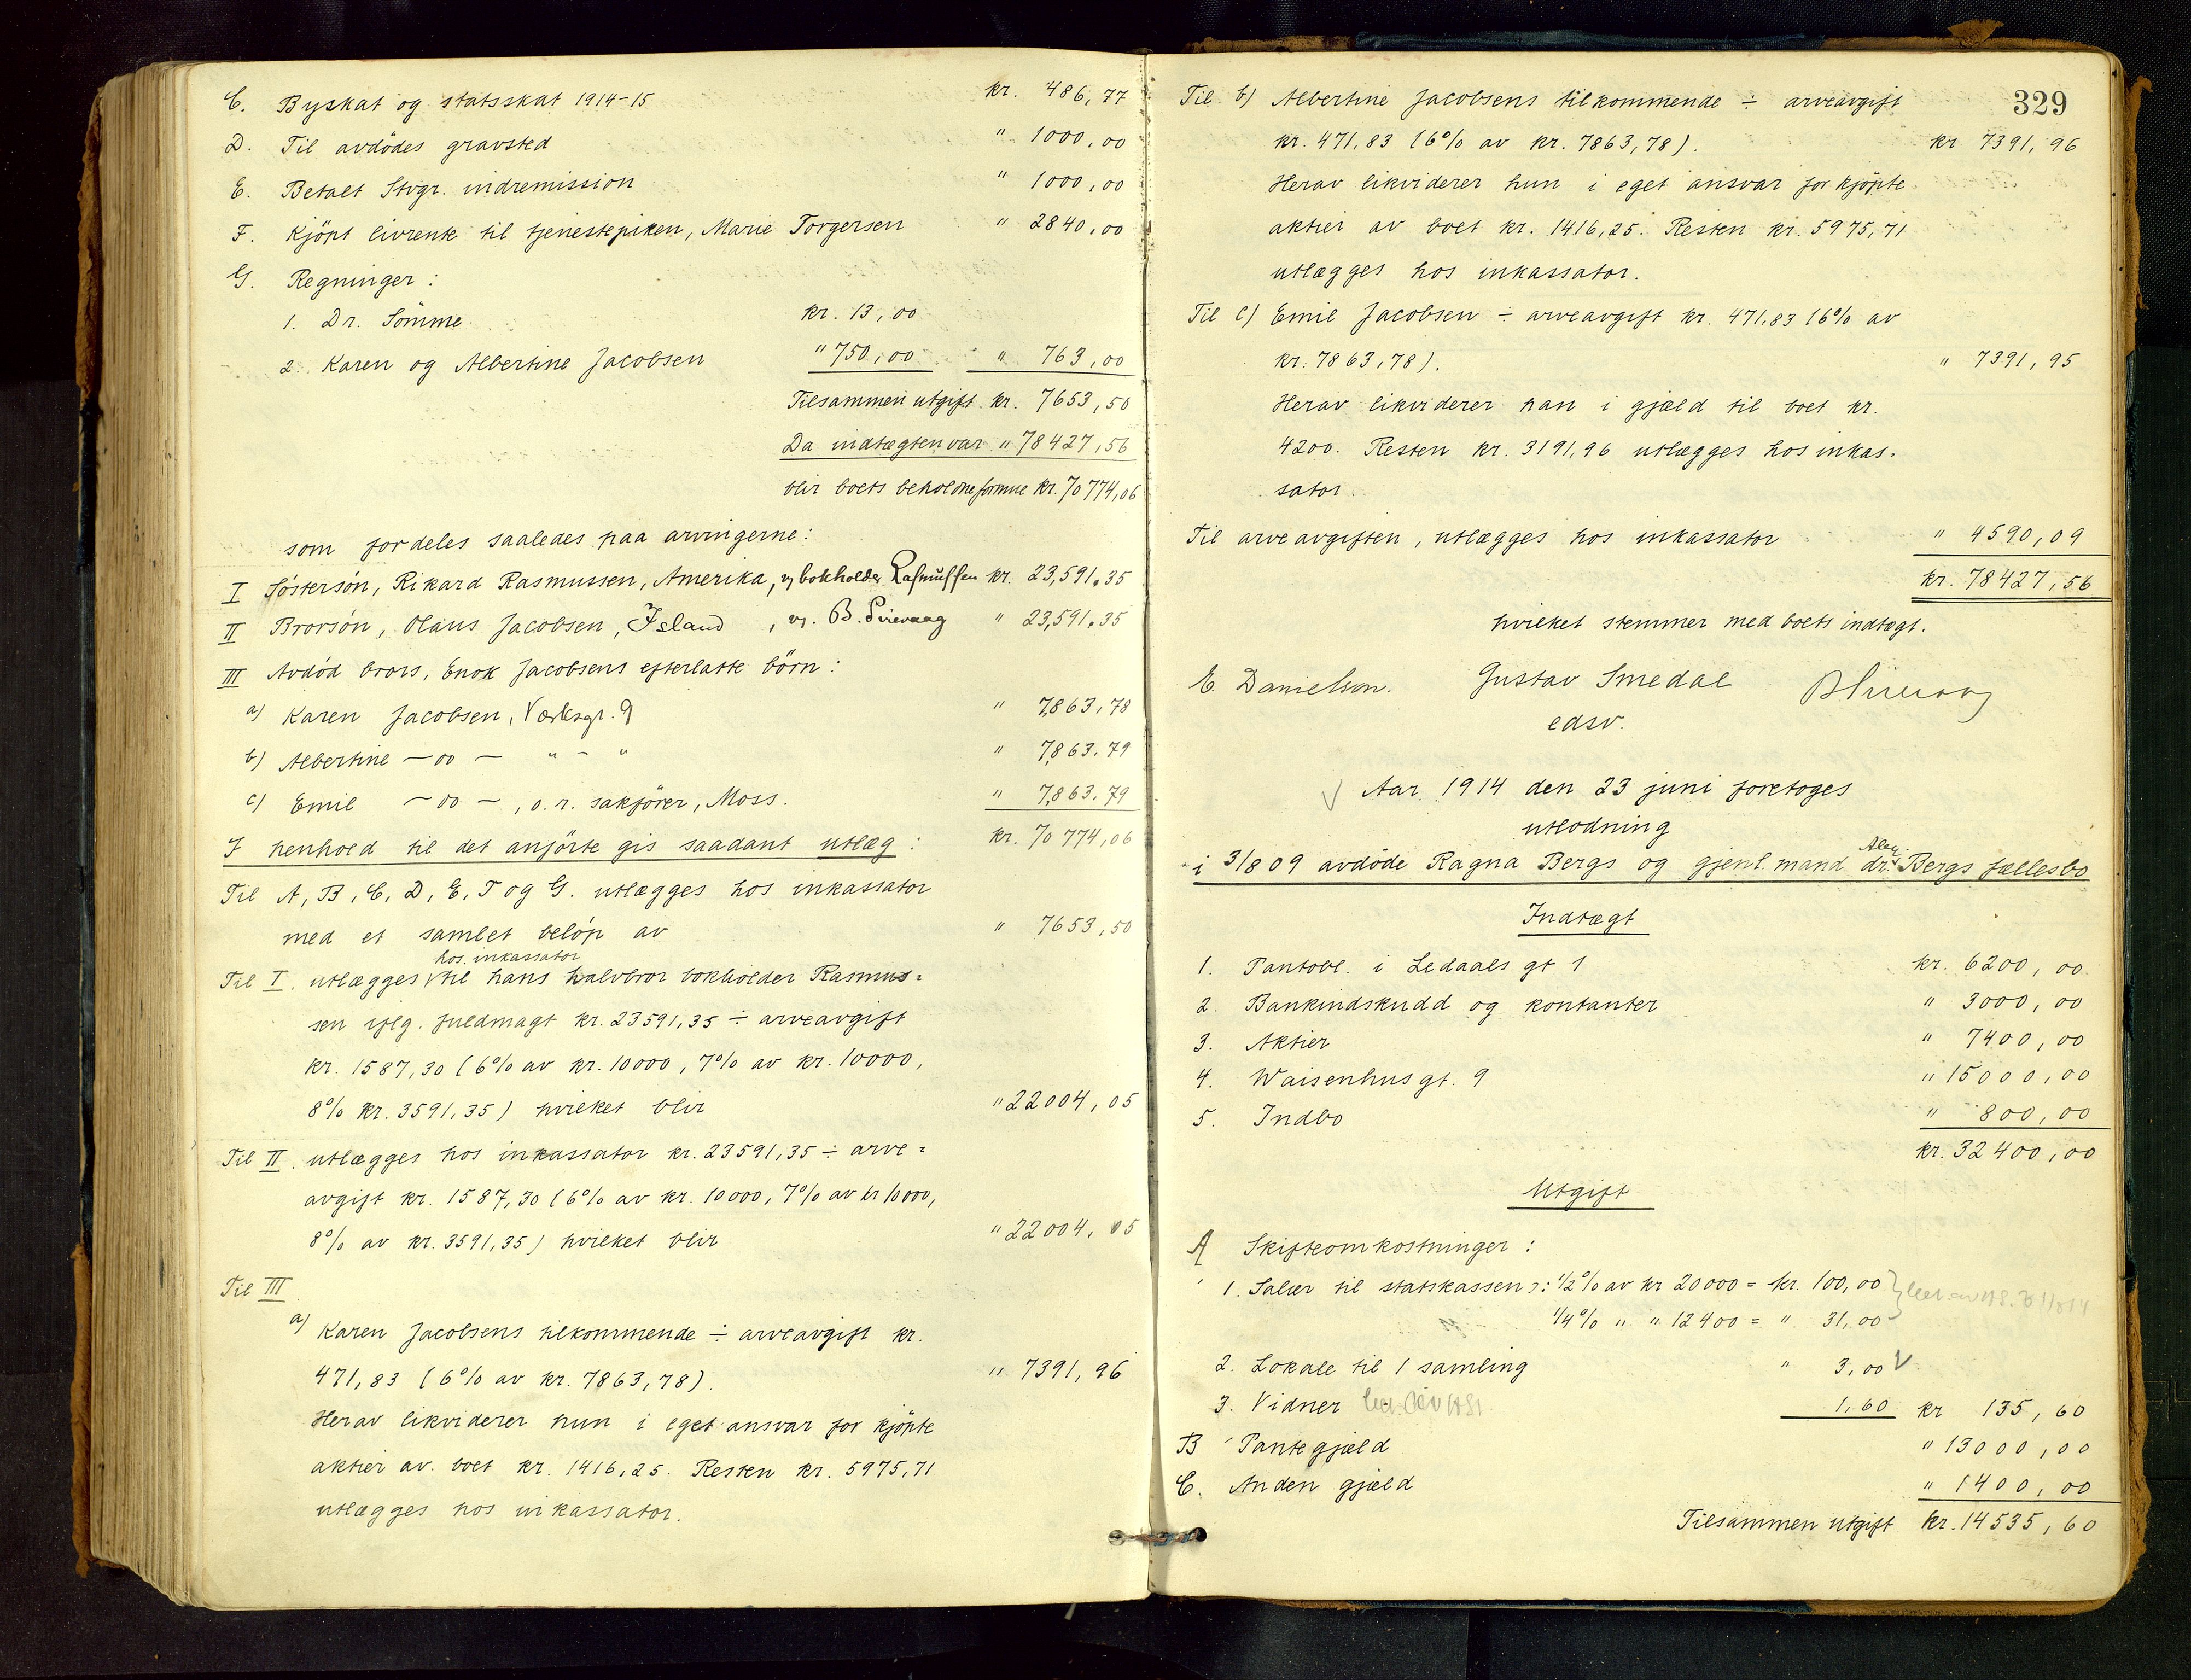 C. Byskat og statsskat 1914-15 kr. 486,77
D. Til avdödes gravsted " 1000,00
E. Betalt Stvgr. indremission " 1000,00
F. Kjöpt livrente til tjenestepiken, Marie Torgersen " 2840,00
G. Regninger:
1. Dr. Sömme kr. 13,00
2. Karen og Albertine Jacobsen " 750,00 " 763,00
Tilsammen utgift kr. 7653,50
Da indtægten var " 78427,56
blir boets beholdne formue kr. 70774,06
som fordeles saaledes paa arvingerne:
I Söstersön, Rikard Rasmussen, Amerika, v/ bokholder Rasmussen kr. 23,591.35
II Brorsön, Olaus Jacobsen, Island, v/. B. " 23,591.35
III Avdöd brors, Enok Jacobsens efterlatte börn:
a) Karen Jacobsen, Værksgr. 9 " 7,863,78
b) Albertine -oo- " - " " 7,863.79
c) Emil -oo-, o.r. sakförer, Moss. " 7,863.79
I henhold til det anförte gis saadant utlæg: kr. 70774,06
Til A, B, C, D, E, F og G. utlægges hos inkassator
med et samlet belöp av " 7653,50
hos inkassator
Til I. utlægges til hans halvbror bokholder Rasmus=
sen iflg. fuldmagt kr. 23591,35 ÷ arveavgift
kr. 1587,30 (6% av kr. 10000, 7% av kr. 10000,
8% kr. 3591,35) hvilket blir " 22004,05
Til II. utlægges hos inkassator kr. 23591,35 ÷ arve=
avgift kr. 1587,30 (6% av kr. 10000, 7% av kr 10000,
8% av kr. 3591,35) hvilket blir " 22004,05
Til III
a) Karen Jacobsens tilkommende ÷ arveavgift kr.
471,83 (6% av kr. 7863,78). " 7391,96
Herav likviderer hun i eget ansvar for kjöpte
aktier av boet kr. 1416,25. Resten kr. 5975,71
utlægges hos inkassator.
329
Til b) Albertine Jacobsens tilkommende ÷ arveavgift
kr. 471,83 (6% av kr. 7863,78). kr 7391,96
Herav likviderer hun i eget ansvar for kjöpte
aktier av boet kr. 1416,25. Resten kr. 5975,71
utlægges hos inkassator.
Til c) Emil Jacobsen ÷ arveavgift kr. 471,83 (6% av
kr. 7863,78). " 7391,95
Herav likviderer han i gjæld til boet kr.
4200. Resten kr. 3191,96 utlægges hos inkas-
sator.
Til arveavgiften, utlægges hos inkassator " 4590,09
kr. 78427,56
hvilket stemmer med boets indtægt.
E. Danielsen. Gustav Smedal
edsv.
Aar 1914 den 23 juni foretoges
utlodning
i 3/8 09 avdöde Ragna Bergs og gjenl. mand dr. Alex. Bergs fællesbo
Indtægt
1. Pantobl. i Ledaals gt 1 kr. 6200,00
2. Bankindskudd og kontanter " 3000,00
3. Aktier " 7400,00
4. Waisenhusgt. 9 " 15000,00
5. Indbo " 800,00
kr. 32400,00
Utgift
A Skifteomkostninger:
1. Salær til statskassen ɔ: 1/2% av kr 20000 = kr. 100,00
1/4% " " 12400 = " 31,00
2. Lokale til 1 samling " 3,00
3. Vidner 1,60 kr 135,60
B Pantegjæld " 13000,00
C. Anden gjæld " 1400,00
Tilsammen utgift kr. 14535,60